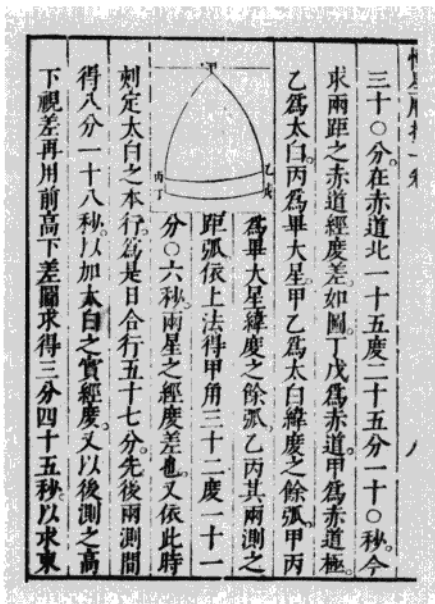 三十〇分在赤道北一十五度二十五分一十〇秒。今
求兩距之赤道經度差。如圖。丁戊爲赤道。甲爲赤道極。
乙爲太白。丙爲畢大星。甲乙爲太白緯度之餘弧。甲丙
爲畢大星緯度之餘弧。乙丙其兩測之
距弧依上法得甲角三十二度一十一
分〇六秒。兩星之經度差也。又依此時
甲
乙
戊
丙
丁
刻定太白之本行。爲是日合行五十七分。先後兩測間
得八分一十八秒。以加太白之實經度。又以後測之高
下視差再用前高下差圖求得三分四十五秒。以求東